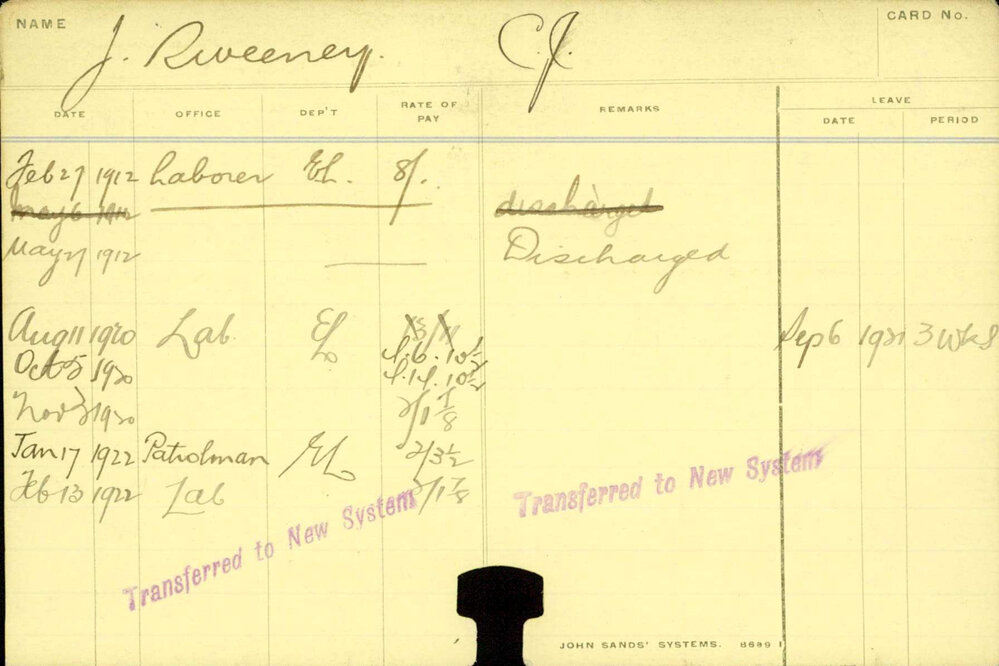 NAME J. Sweeney. C.J. CARD No.
DATE OFFICE DEP'T RATE OF PAY REMARKS LEAVE
DATE PERIOD
Feb 27 1912 Laborer EL. 8/.
May 6 1912 discharged
May 27 1912 Discharged
Aug 11 1920 Lab EL Sep 6 1921 3 wks
Oct 5 1920
Nov 1920 2/1 7/8
Jan 17 1922 Patrolman EL 2/3½
Feb 13 1922 Lab 2/1 7/8
Transferred to New System
Transferred to New System
JOHN SANDS' SYSTEMS. 8689 1